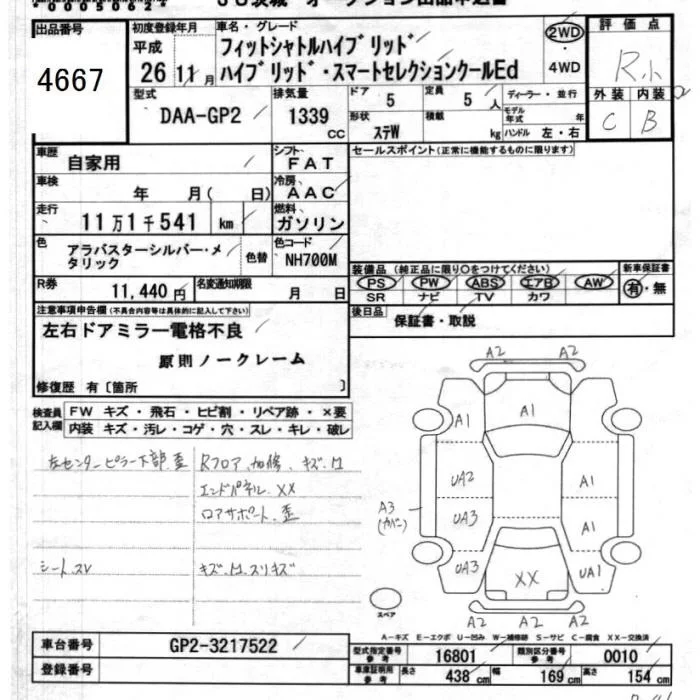 0005062
JU茨城 オークション出品申込書
出品番号 初度登録年月 車名・グレード 評価点
4667 平成 26年11月 フィットシャトルハイブリッド 2WD・4WD R小
ハイブリッド・スマートセレクションクールEd
型式 排気量 ドア 定員 ディーラー・並行 外装 内装
DAA-GP2 1339 cc 5 5人 モデル年式 年 C B
形状 ステW 積載 kg ハンドル 左・右
車歴 自家用 シフト FAT セールスポイント(正常に機能するものに限ります)
車検 年 月( 日) 冷房 AAC
走行 11万1千541 km 燃料 ガソリン
色 アラバスターシルバー・メタリック 色替 色コード NH700M
装備品(純正品に限り○をつけてください) 新車保証書
PS PW ABS エアB AW 有・無
SR ナビ TV カワ
R券 11,440円 名変通知期限 月 日
後日品 保証書・取説
注意事項申告欄(不具合内容等は具体的に記入して下さい)
左右ドアミラー電格不良
原則ノークレーム
修復歴 有〔箇所 〕
検査員記入欄 FW キズ・飛石・ヒビ割・リペア跡・×要
内装 キズ・汚レ・コゲ・穴・スレ・キレ・破レ
左センターピラー下部、歪 Rフロア、加修、キズ、M
エンドパネル XX
ロアサポート、歪
シート、スレ キズ、M、スリキズ
A2 A2
A1 A1
UA2 A1
A3 (カバー) UA3 A1
UA3 XX UA1
スペア
A2 A2 A2
A-キズ E-エクボ U-凹み W-補修跡 S-サビ C-腐食 XX-交換済
車台番号 GP2-3217522
登録番号
型式指定番号 参考 16801 類別区分番号 参考 0010
車庫証明用 参考 長さ 438 cm 幅 169 cm 高さ 154 cm